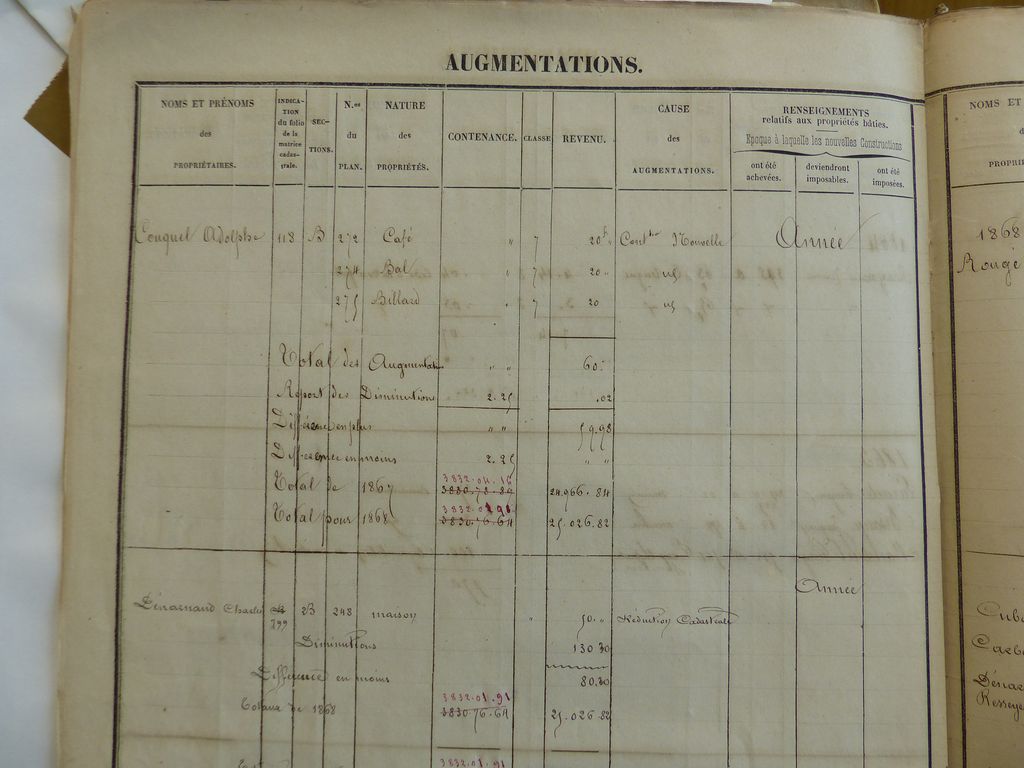 AUGMENTATIONS.
NOMS ET PRÉNOMS des PROPRIÉTAIRES.
INDICATION du folio de la matrice cadastrale.
SECTIONS.
N.os du PLAN.
NATURE des PROPRIÉTÉS.
CONTENANCE.
CLASSE
REVENU.
CAUSE des AUGMENTATIONS.
RENSEIGNEMENTS
relatifs aux propriétés bâties.
Epoque à laquelle les nouvelles Constructions
ont été achevées.
deviendront imposables.
ont été imposées.
NOMS ET
1868
Rouge
Couquet Adolphe 118 B 272 Café " 7 20 f " Const on Nouvelle Année
274 Bal " 7 20 " id
275 Billard " 7 20 id
Total des Augmentations " " 60.
Report des Diminutions 2.25 .02
Différence en plus " " 59.98
Différence en moins 2.25 " "
3832.04.16
Total de 1867 3830.78.89 24,966.84
3832.01.91
Total pour 1868 3830.76.64 25,026.82
Année
Charles 399 B 248 maison " 50. " Réduction Cadastrale
Diminutions 130 30
Différence en moins 80.30
3832.01.91
Totaux de 1868 3830.76.64 25,026 82
3832.01.91